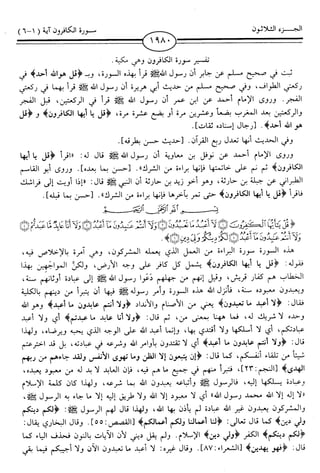 الجزء الثلاثون
١٩٨٠
سورة الكافرون آية (١-٦)
تفسير سورة الكافرون وهي مكية.
ثبت في صحيح مسلم عن جابر أن رسول الله ﷺ قرأ بهذه السورة، وبـ ﴿قل هو الله أحد﴾ في
ركعتي الطواف، وفي صحيح مسلم من حديث أبي هريرة أن رسول الله ﷺ قرأ بهما في ركعتي
الفجر. وروى الإمام أحمد عن ابن عمر أن رسول الله ﷺ قرأ في الركعتين، قبل الفجر
والركعتين بعد المغرب بضعاً وعشرين مرة أو بضع عشرة مرة، ﴿قل يا أيها الكافرون﴾ و ﴿قل
هو الله أحد﴾. [رجال إسناده ثقات].
وفي الحديث أنها تعدل ربع القرآن. [حديث حسن بطرقه].
وروى الإمام أحمد عن نوفل بن معاوية أن رسول الله ﷺ قال له: «اقرأ ﴿قل يا أيها
الكافرون﴾ ثم نم على خاتمتها فإنها براءة من الشرك». [حسن بما بعده]. وروى أبو القاسم
الطبراني عن جبلة بن حارثة، وهو أخو زيد بن حارثة أن النبي ﷺ قال: «إذا أويت إلى فراشك
فاقرأ ﴿قل يا أيها الكافرون﴾ حتى تمر بآخرها فإنها براءة من الشرك». [حسن بما قبله].
بسم الله الرحمن الرحيم
﴿قُلْ يَا أَيُّهَا الْكَافِرُونَ ۝ لَا أَعْبُدُ مَا تَعْبُدُونَ ۝ وَلَا أَنتُمْ عَابِدُونَ مَا أَعْبُدُ ۝ وَلَا أَنَا عَابِدٌ مَّا عَبَدتُّمْ ۝
وَلَا أَنتُمْ عَابِدُونَ مَا أَعْبُدُ ۝ لَكُمْ دِينُكُمْ وَلِيَ دِينِ ۝﴾.
هذه السورة سورة البراءة من العمل الذي يعمله المشركون، وهي آمرة بالإخلاص فيه،
فقوله: ﴿قل يا أيها الكافرون﴾ يشمل كل كافر على وجه الأرض، ولكنّ المواجهين بهذا
الخطاب هم كفار قريش، وقيل إنهم من جهلهم دعَوا رسول الله ﷺ إلى عبادة أوثانهم سنة،
ويعبدون معبوده سنة، فأنزل الله هذه السورة وأمر رسوله ﷺ فيها أن يتبرأ من دينهم بالكلية
فقال: ﴿لا أعبد ما تعبدون﴾ يعني من الأصنام والأنداد ﴿ولا أنتم عابدون ما أعبد﴾ وهو الله
وحده لا شريك له، فما ههنا بمعنى من، ثم قال: ﴿ولا أنا عابد ما عبدتم﴾ أي ولا أعبد
عبادتكم، أي لا أسلكها ولا أقتدي بها، وإنما أعبد الله على الوجه الذي يحبه ويرضاه، ولهذا
قال: ﴿ولا أنتم عابدون ما أعبد﴾ أي لا تقتدون بأوامر الله وشرعه في عبادته، بل قد اخترعتم
شيئاً من تلقاء أنفسكم، كما قال: ﴿إن يتبعون إلا الظن وما تهوى الأنفس ولقد جاءهم من ربهم
الهدى﴾ [النجم: ٢٣]، فتبرأ منهم في جميع ما هم فيه، فإن العابد لا بد له من معبود يعبده،
وعبادة يسلكها إليه، فالرسول ﷺ وأتباعه يعبدون الله بما شرعه، ولهذا كان كلمة الإسلام
«لا إله إلا الله محمد رسول الله» أي لا معبود إلا الله ولا طريق إليه إلا ما جاء به الرسول ﷺ،
والمشركون يعبدون غير الله عبادة لم يأذن بها الله، ولهذا قال لهم الرسول ﷺ: ﴿لكم دينكم
ولي دين﴾ كما قال تعالى: ﴿لنا أعمالنا ولكم أعمالكم﴾ [القصص: ٥٥]. وقال البخاري يقال:
﴿لكم دينكم﴾ الكفر ﴿ولي دين﴾ الإسلام. ولم يقل ديني لأن الآيات بالنون فحذف الياء كما
قال: ﴿فهو يهدين﴾ [الشعراء: ٨٧]. وقال غيره: لا أعبد ما تعبدون الآن ولا أجيبكم فيما بقي